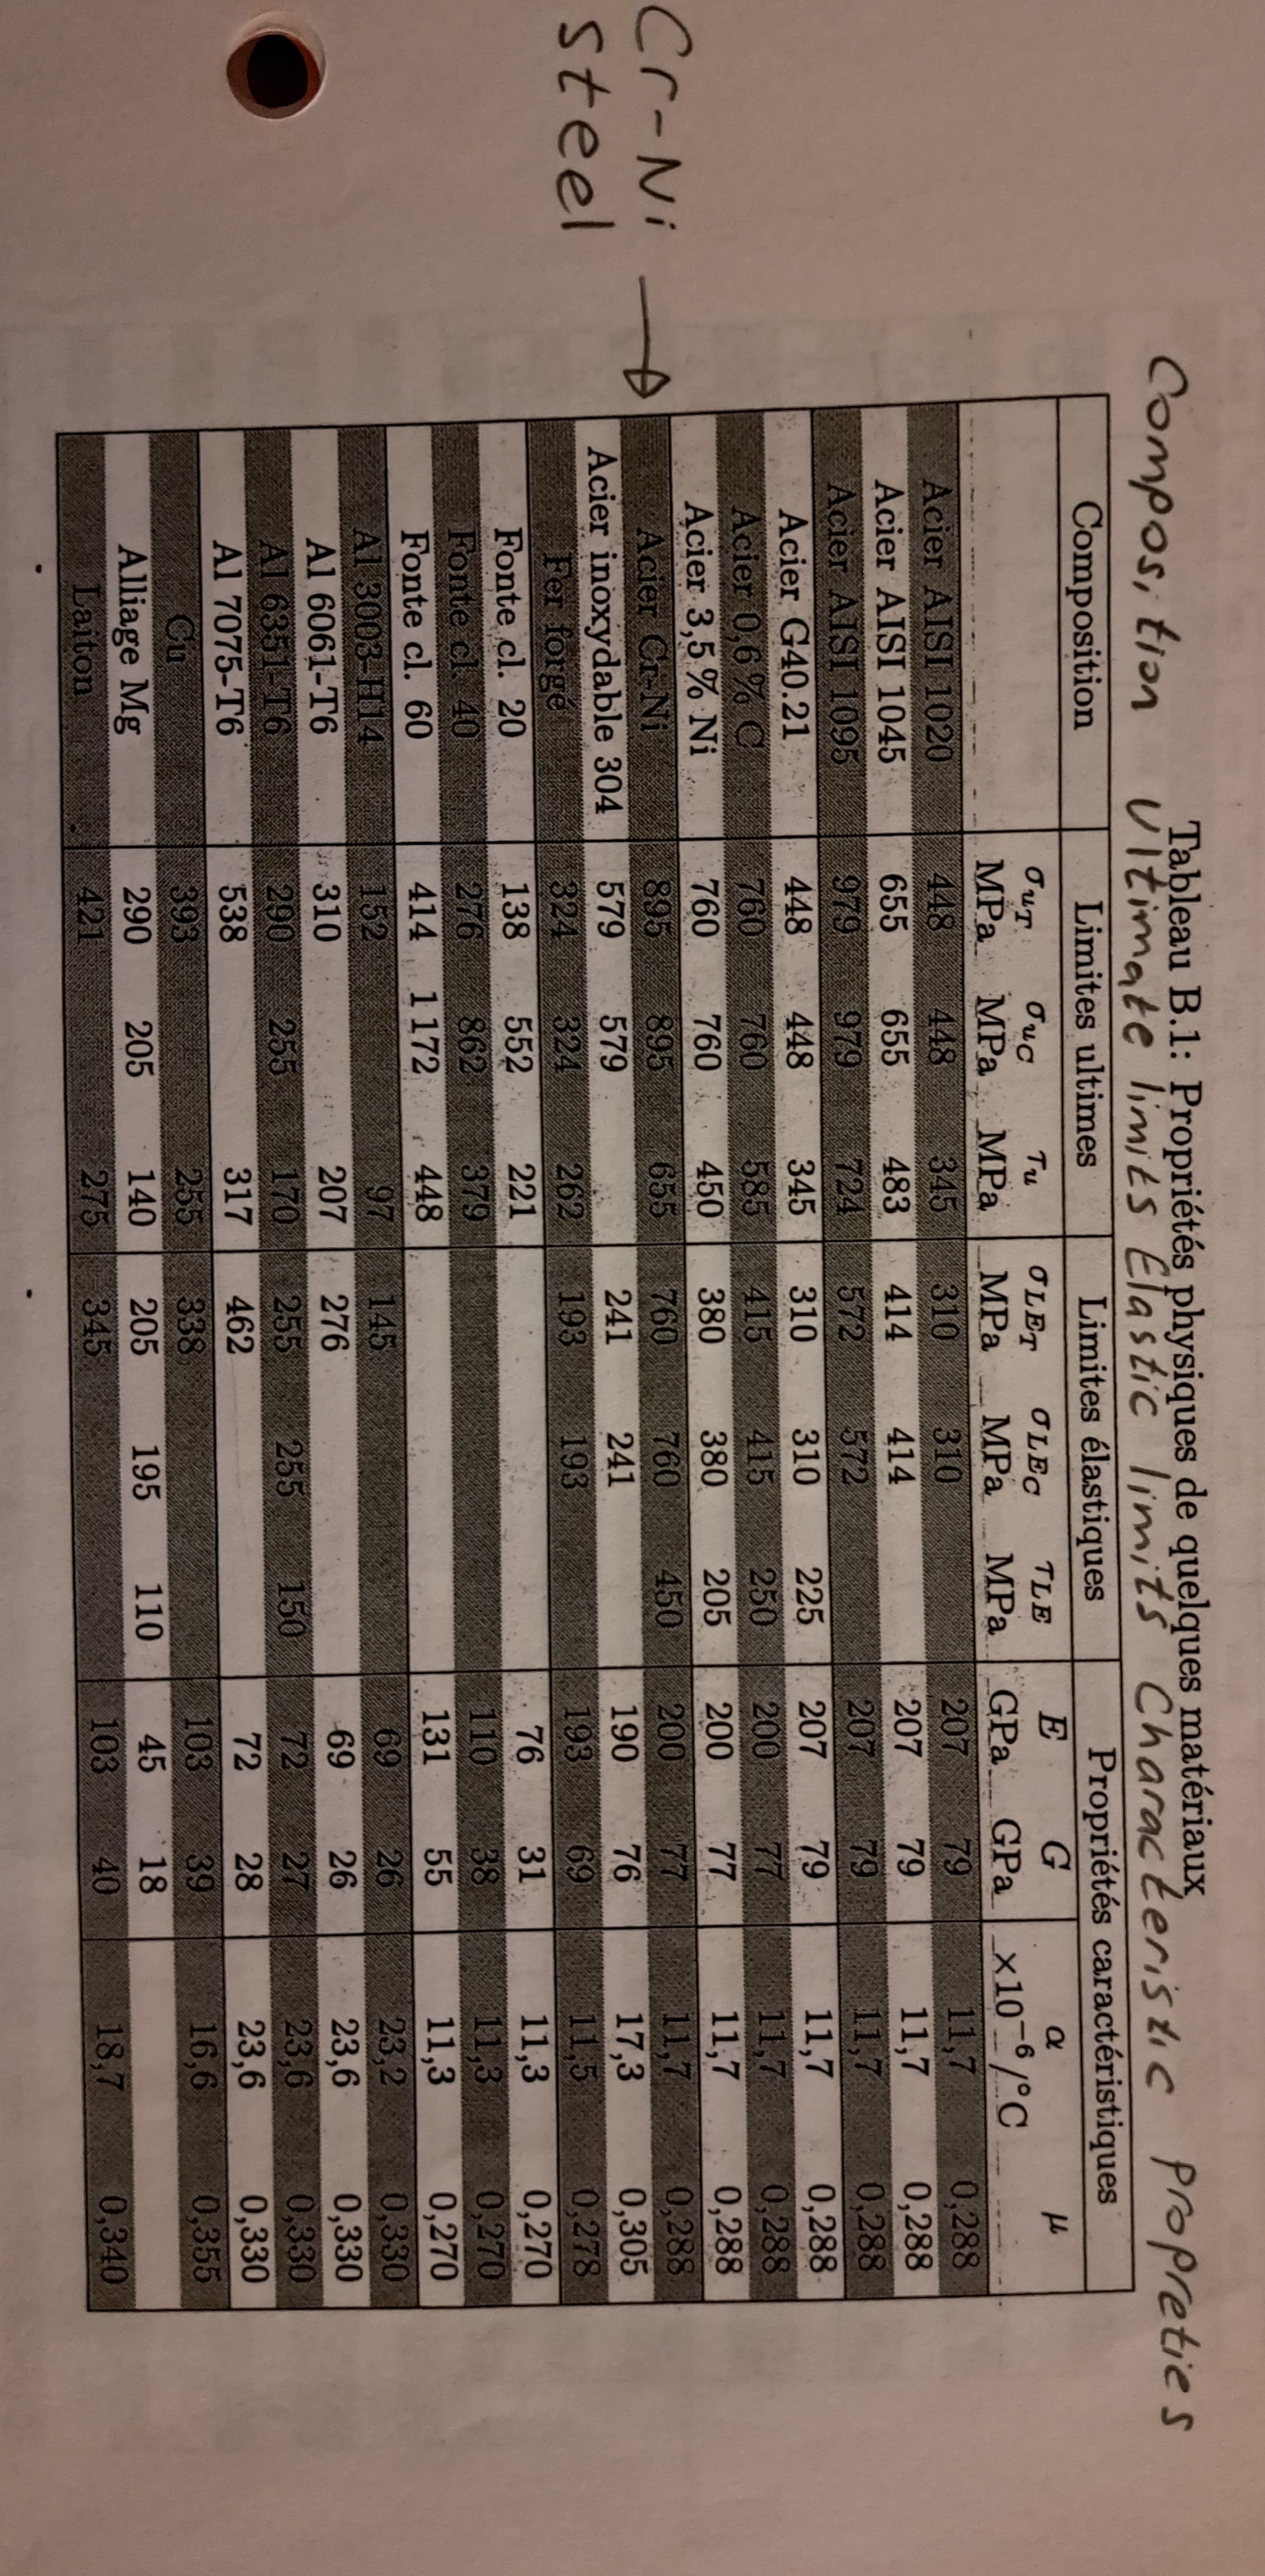 Tableau B.1: Propriétés physiques de quelques matériaux
Composition Ultimate limits Elastic limits Characteristic Propreties
Composition Limites ultimes Limites élastiques Propriétés caractéristiques
σuT σuC τu σLET σLEC τLE E G α μ
MPa MPa MPa MPa MPa MPa GPa GPa ×10⁻⁶/°C
Acier AISI 1020 448 448 345 310 310 207 79 11,7 0,288
Acier AISI 1045 655 655 483 414 414 207 79 11,7 0,288
Acier AISI 1095 979 979 724 572 572 207 79 11,7 0,288
Acier G40.21 448 448 345 310 310 225 207 79 11,7 0,288
Acier 0,6 % C 760 760 585 415 415 250 200 77 11,7 0,288
Acier 3,5 % Ni 760 760 450 380 380 205 200 77 11,7 0,288
Cr-Ni
steel
Acier Cr-Ni 895 895 655 760 760 450 200 77 11,7 0,288
Acier inoxydable 304 579 579 241 241 190 76 17,3 0,305
Fer forgé 324 324 262 193 193 193 69 11,5 0,278
Fonte cl. 20 138 552 221 76 31 11,3 0,270
Fonte cl. 40 276 862 379 110 38 11,3 0,270
Fonte cl. 60 414 1 172 448 131 55 11,3 0,270
Al 3003-H14 152 97 145 69 26 23,2 0,330
Al 6061-T6 310 207 276 69 26 23,6 0,330
Al 6351-T6 290 255 170 255 255 150 72 27 23,6 0,330
Al 7075-T6 538 317 462 72 28 23,6 0,330
Cu 393 255 338 103 39 16,6 0,355
Alliage Mg 290 205 140 205 195 110 45 18
Laiton 421 275 345 103 40 18,7 0,340